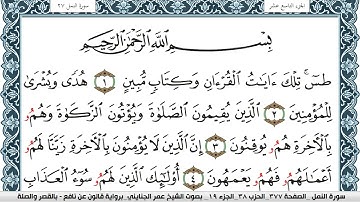 الجزء التاسع عشر
سورة النمل ٢٧
بِسْمِ اللَّهِ الرَّحْمَٰنِ الرَّحِيمِ
طسٓۚ تِلْكَ ءَايَٰتُ الْقُرْءَانِ وَكِتَابٖ مُّبِينٍ ١ هُدٗى وَبُشْرَىٰ
لِلْمُؤْمِنِينَ ٢ الَّذِينَ يُقِيمُونَ الصَّلَوٰةَ وَيُؤْتُونَ الزَّكَوٰةَ وَهُمُۥ
بِالْأَخِرَةِ هُمُۥ يُوقِنُونَ ٣ إِنَّ الَّذِينَ لَا يُؤْمِنُونَ بِالْأَخِرَةِ زَيَّنَّا لَهُمُۥ
أَعْمَٰلَهُمُۥ فَهُمُۥ يَعْمَهُونَ ٤ أُوْلَٰٓئِكَ الَّذِينَ لَهُمُۥ سُوٓءُ الْعَذَابِ
سورة النمل الصفحة ٣٧٧ الحزب ٣٨ الجزء ١٩ بصوت الشيخ عمر الجنايني برواية قالون عن نافع - بالقصر والصلة